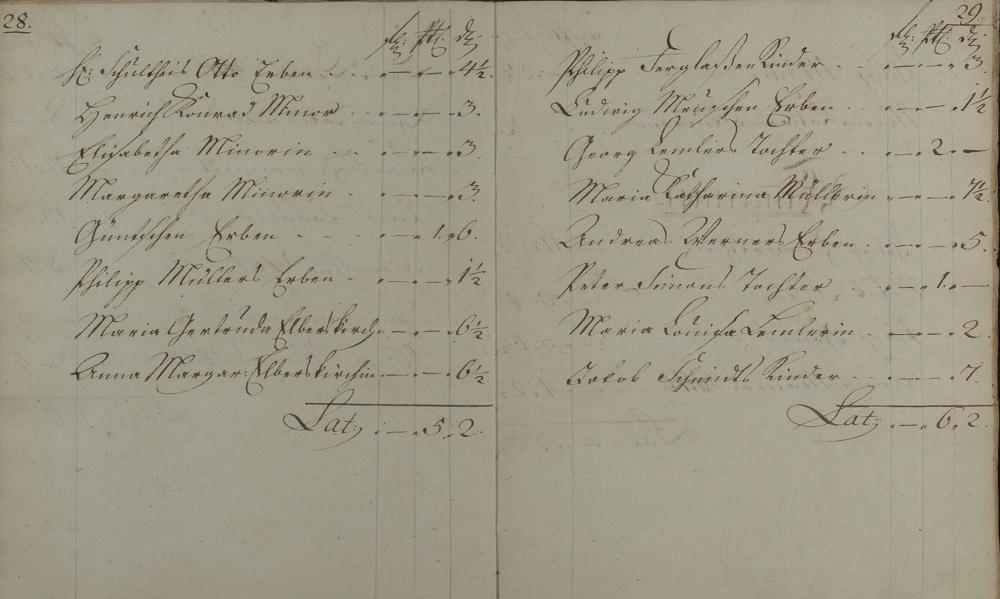 28.
fl: ß: d:
H: Schultheis Otto Erben . . „ — „ — „ 4½.
Henrich Konrad Minor . . „ — „ — „ 3.
Elisabetha Minorin . . „ — „ — „ 3.
Margaretha Minorin . „ — „ — „ 3.
Güntschen Erben . . . „ — „ 1. „ 6.
Philipp Müllers Erben . „ — „ — „ 1½
Maria Gertruda Elberskirch. „ — „ — „ 6½
Anna Margar: Elberskirchin „ — „ — „ 6½
Lat: „ — „ 5. „ 2.
29.
fl: ß: d:
Philipp Kinder . . „ — „ — „ 3.
Ludwig Erben . . „ — „ — „ 1½
Georg Lemlers Tochter . . „ — „ 2. „ —
Maria Katharina Müllerin „ — „ — „ 4½.
Andreas Werners Erben . „ — „ — „ 5.
Peter Simons Tochter . . „ — „ 1. „ —
Maria Louisa Lemlerin . „ — „ — „ 2.
Jakob Schmidts Kinder . . „ — „ — „ 7.
Lat: „ — „ 6. „ 2.